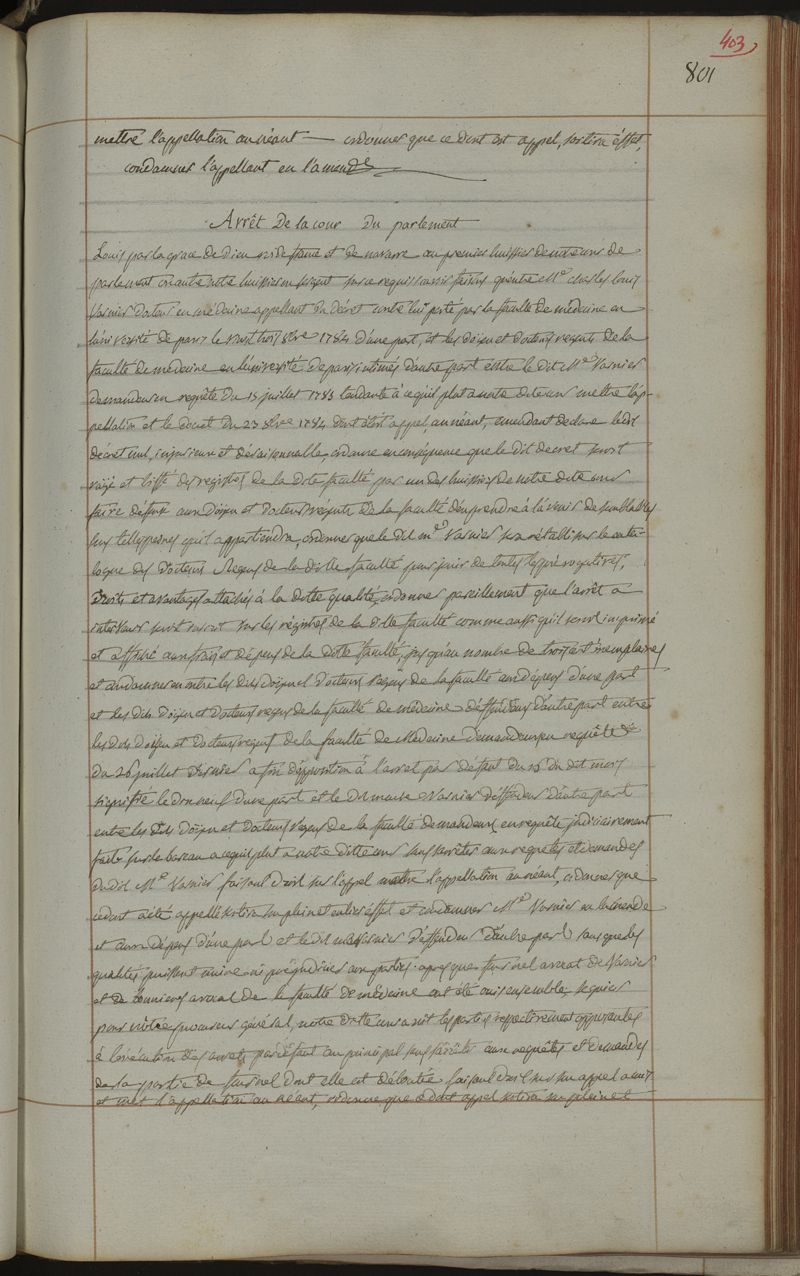 403
801
mettre l'appellation au néant — ordonner que ce dont est appel, sortira effet,
condamner l'appellant en l'amende
Arrêt De la cour Du parlement
Louis par la grace de Dieu roi de france et de navarre au premier huissier de notre cour de
parlement ou autre notre huissier ou sergent sur ce requis savoir faisons qu'entre Me charles louis
Varnier Docteur en médecine appellant du décret contre lui porté par la faculté de médecine en
l'université de paris le vingt trois 8bre 1784 d'une part, et les doyen et docteurs regents de la
faculté de medecine en l'université de paris intimés d'autre part entre le dit Me Varnier
demandeur en requête du 15 juillet 1785 tendante à ce qu'il plut a notre dite cour mettre l'ap-
pellation et le decret du 23 8bre 1784 dont étoit appel, au néant, emendant declare ledit
décret nul, injurieux et déraisonnable, ordonner en conséquence que le dit decret seroit
rayé et biffé des registres de la dite faculté par un des huissiers de notre dite cour
faire défense aux Doyen et Docteurs régents de la faculté d'en prendre à l'avenir de semblables
sous telles peines qu'il appartiendra, ordonner que le dit me Varnier sera rétabli sur le cata-
logue des Docteurs Regens de la ditte faculté pour jouir de toutes les prérogatives,
Droits et avantages attachés à la ditte qualité, ordonner pareillement que l'arrêt a
intervenir seroit inscrit sur les régistres de la dite faculté comme aussi qu'il seroit imprimé
et affiché aux frais et dépens de la ditte faculté, jusqu'au nombre de trois cent exemplaires
et condamner en outre les dits doyen et Docteurs Regens de la faculté aux dépens d'une part
et les dits Doyen et Docteurs regens de la faculté de médecine deffendeurs d'autre part entre
les dits Doyen et Docteurs regens de la faculté de Medecine Demandeurs en requête
du 26 juillet dernier a fin d'opposition à l'arret par defaut du 15 du dit mois
signifié le dix neuf d'une part et le dit Varnier deffendeur d'autre part
entre les dits Doyen et Docteurs Regens de la faculté demandeurs en requête judiciairement
faite sur le bareau a ce qu'il plut a notre ditte cour sans s'arrêter aux requetes et demandes
du dit Me Varnier faisant droit sur l'appel mettre l'appellation au néant, ordonner que
ce dont a été appellé sortira son plein et entier effet et condamner Me Varnier en l'amende
et aux dépens d'une part et le dit me Varnier deffendeur d'autre part sans que les
qualités puissent nuire ni préjudicier aux parties. après que avocat de Varnier
et avocat de la faculté de médecine ont été ouis ensemble, seguier
pour notre procureur général, notre ditte cour a reçu les parties respectivement opposantes
à l'exécution des arrets par défaut au principal sans s'arrêter aux requêtes et demandes
de la partie de dont elle est déboutée faisant droit sur son appel a mis
et met l'appellation au néant, ordonne que ce dont appel sortira son plein et